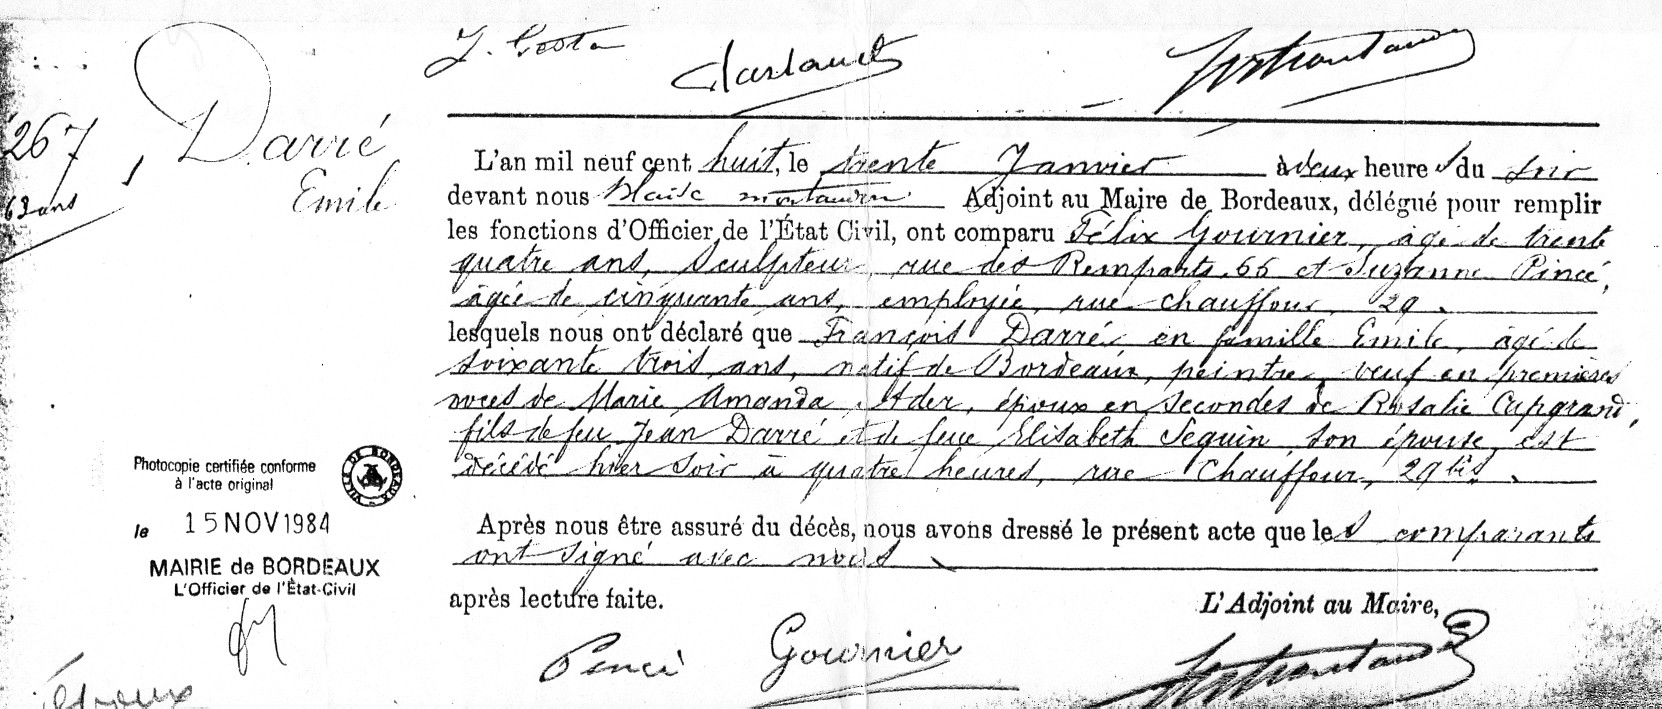 J. Costa
267
Darré
Emile
63 ans
L'an mil neuf cent huit, le trente Janvier à deux heures du soir
devant nous Blaise Montauzon Adjoint au Maire de Bordeaux, délégué pour remplir
les fonctions d'Officier de l'État Civil, ont comparu Félix Gournier, âgé de trente
quatre ans, sculpteur, rue des Remparts 66 et Suzanne Pincé,
âgée de cinquante ans, employée, rue Chauffour, 29.
lesquels nous ont déclaré que François Darré, en famille Emile, âgé de
soixante trois ans, natif de Bordeaux, peintre, veuf en premières
noces de Marie Amanda Ader, époux en secondes de Rosalie Capgrand,
fils de feu Jean Darré et de feue Elisabeth Seguin son épouse, est
décédé hier soir à quatre heures, rue Chauffour, 29 bis.
Après nous être assuré du décès, nous avons dressé le présent acte que les comparants
ont signé avec nous
après lecture faite.
L'Adjoint au Maire,
Pincé Gournier
Photocopie certifiée conforme
à l'acte original
VILLE DE BORDEAUX
le 15 NOV 1984
MAIRIE de BORDEAUX
L'Officier de l'État-Civil